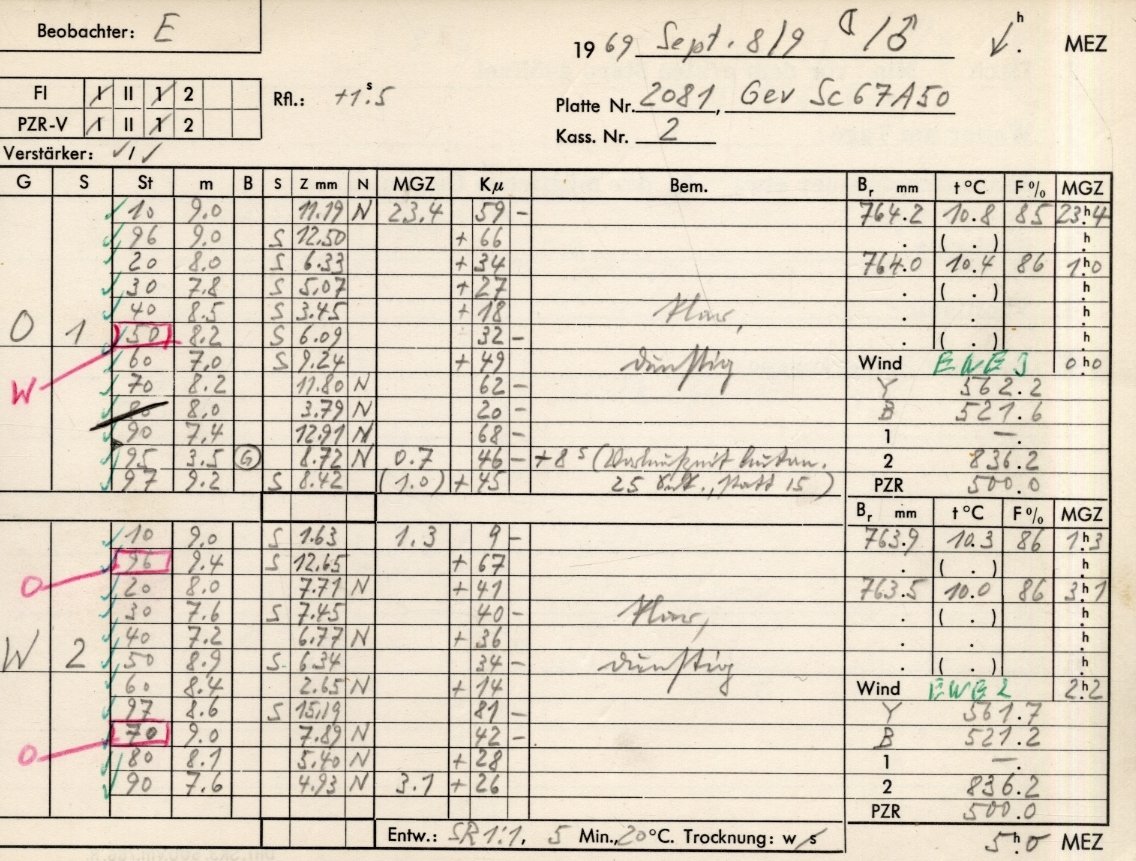 Beobachter: E
19 69 Sept. 8/9 / ♂ h . MEZ
FI I II 1 2
Rfl.: +1.s5
Platte Nr. 2081, Gev Sc 67A50
PZR-V I II 1 2
Kass. Nr. 2
Verstärker: ✓/✓
G S St m B S Z mm N MGZ Kµ Bem. Br mm t°C F% MGZ
10 9.0 11.19 N 23.4 59 - 764.2 10.8 85 23h.4
96 9.0 S 12.50 + 66 . ( . ) h.
20 8.0 S 6.33 + 34 764.0 10.4 86 1h.0
30 7.8 S 5.07 + 27 . ( . ) h.
40 8.5 S 3.45 + 18 klar, . . h.
O 1 50 8.2 S 6.09 32 - . ( . ) h.
60 7.0 S 9.24 + 49 dunstig Wind 0h0
W 70 8.2 11.80 N 62 - Y 562.2
80 8.0 3.79 N 20 - B 521.6
90 7.4 12.91 N 68 - 1 —.
95 3.5 G 8.72 N 0.7 46 - +8s ( 2 836.2
97 9.2 S 8.42 (1.0) + 45 25 statt 15) PZR 500.0
Br mm t°C F% MGZ
10 9.0 S 1.63 1.3 9 - 763.9 10.3 86 1h.3
O 96 9.4 S 12.65 + 67 . ( . ) h.
20 8.0 7.71 N + 41 763.5 10.0 86 3h.1
30 7.6 S 7.45 40 - klar, . ( . ) h.
40 7.2 6.77 N + 36 . . h.
W 2 50 8.9 S 6.34 34 - dunstig . ( . ) h.
60 8.4 2.65 N + 14 Wind 2h.2
97 8.6 S 15.19 81 - Y 561.7
O 70 9.0 7.89 N 42 - B 521.2
80 8.1 5.40 N + 28 1 —.
90 7.6 4.93 N 3.1 + 26 2 836.2
PZR 500.0
Entw.: SR 1:1, 5 Min., 20°C. Trocknung: w/s 5h.0 MEZ